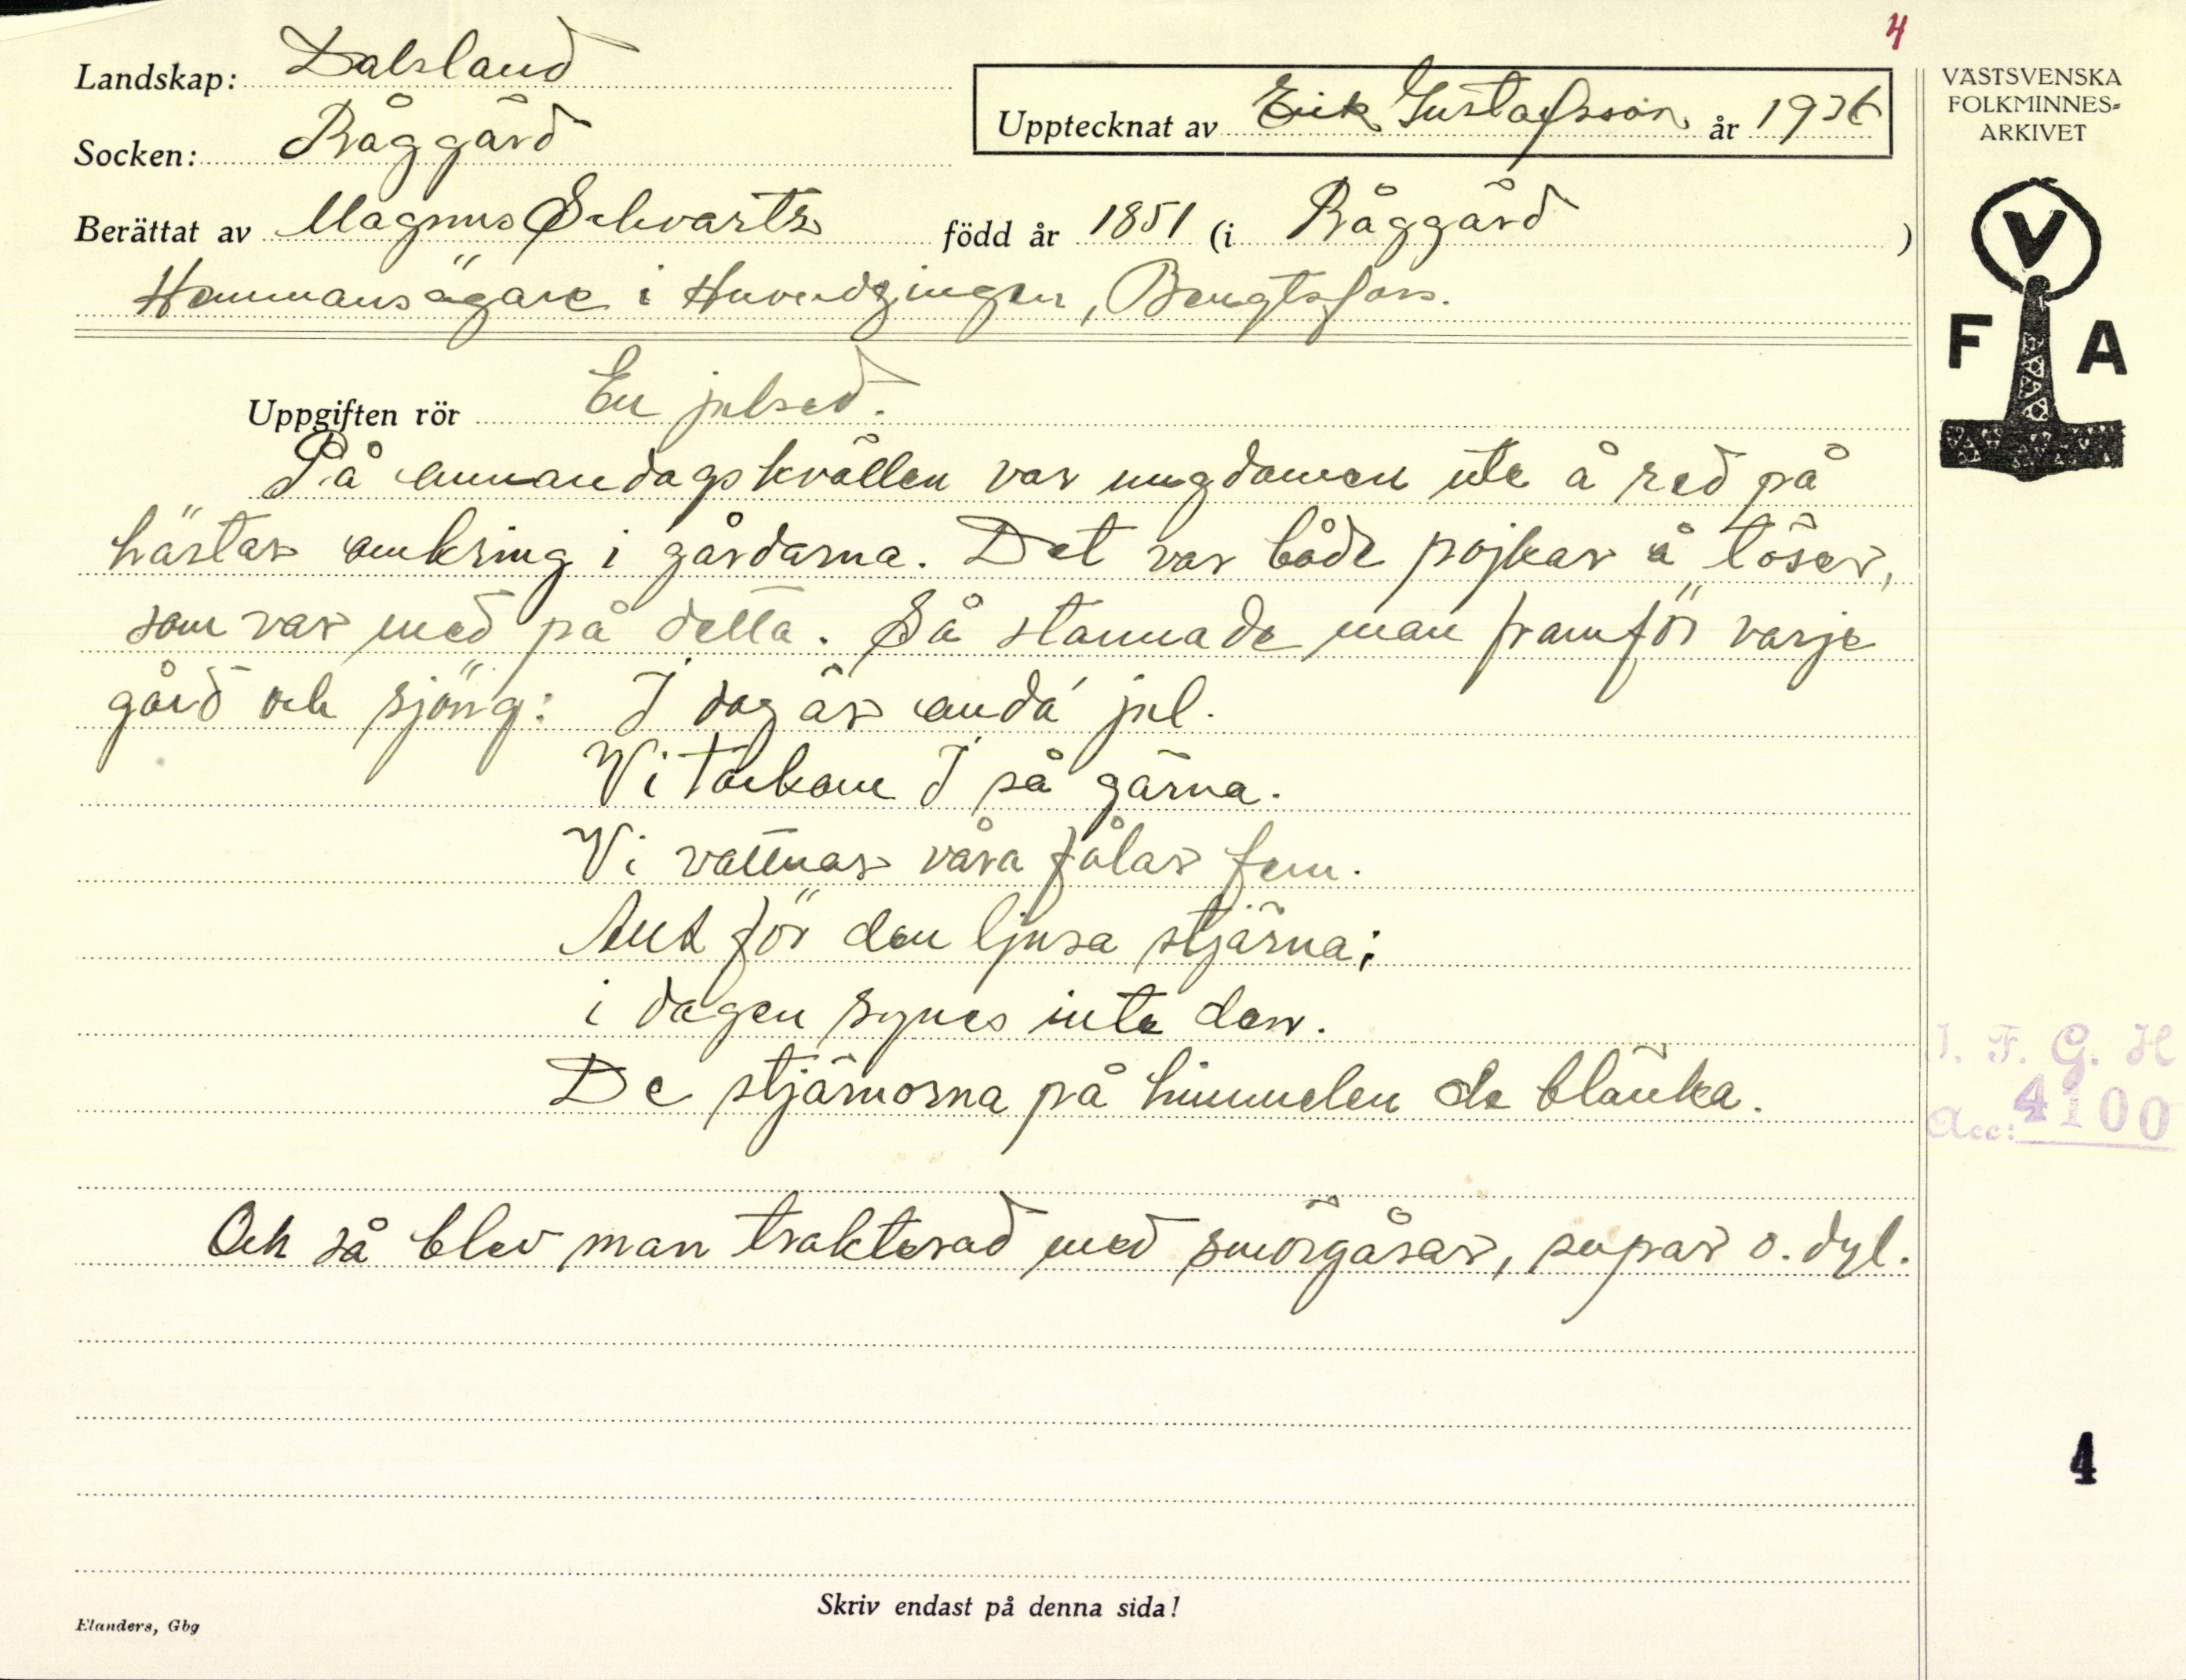 4
Landskap: Dalsland
Socken: Råggärd
Upptecknat av Erik Gustafsson år 1936
VÄSTSVENSKA
FOLKMINNES-
ARKIVET
Berättat av Magnus Schvartz född år 1851 (i Råggärd )
Hemmansägare i Bengtsfors.
V
F A
Uppgiften rör En julsed.
På annandagskvällen var ungdomen ute å red på
hästar omkring i gårdarna. Det var både pojkar å töser,
som var med på detta. Så stannade man framför varje
gård och sjöng: I dag är andá jul.
Vi tackom I så gärna.
Vi vattnar våra fålar fem.
Allt för den ljusa stjärna;
i dagen synes inte den.
De stjärnorna på himmelen de blänka.
Och så blev man trakterad med smörgåsar, supar o. dyl.
I. F. G. H
Acc: 4100
4
Skriv endast på denna sida!
Elanders, Gbg